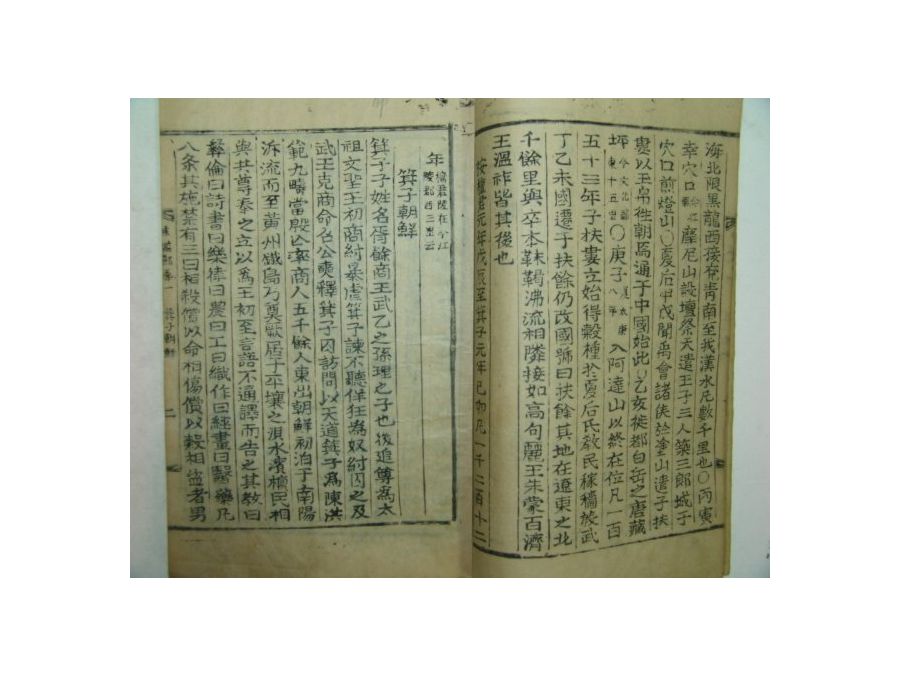 海北限黑龍西接在靑南至我漢水凡數千里也〇丙寅
幸穴口摩尼山設壇祭天遣王子三人築三郞城于
穴口前燈山〇夏后甲戌聞禹會諸侯於塗山遣子扶
婁以玉帛徃朝焉通于中國始此〇乙亥徙都白岳之唐藏
坪〇庚子入阿達山以終在位凡一百
五十三年子扶婁立始得穀種於夏后氏敎民稼穡放武
丁乙未國遷于扶餘仍改國號曰扶餘其地在遼東之北
千餘里與卒本靺鞨沸流相隣接如高句麗王朱蒙百濟
王溫祚皆其後也
按檀君元年戊辰至箕子元年己卯凡一千二百十二
年檀君陵在今江
陵郡西三里云
箕子朝鮮
箕子子姓名胥餘商王武乙之孫理之子也後追尊爲太
祖文聖王初商紂暴虐箕子諫不聽佯狂爲奴紂囚之及
武王克商命召公奭釋箕子囚訪問以天道箕子爲陳洪
範九疇當殷亾率商人五千餘人東出朝鮮初泊于南陽
泝流而至黃州鐵島乃奠厥居于平壤之浿水濱檀民相
與共尊奉之立以爲王初至言語不通譯而告之其敎曰
彜倫曰詩書曰樂律曰農曰工曰織作曰經畫曰醫藥凡
八条其施禁有三曰相殺償以命相傷償以穀相盜者男
箕子朝鮮
二